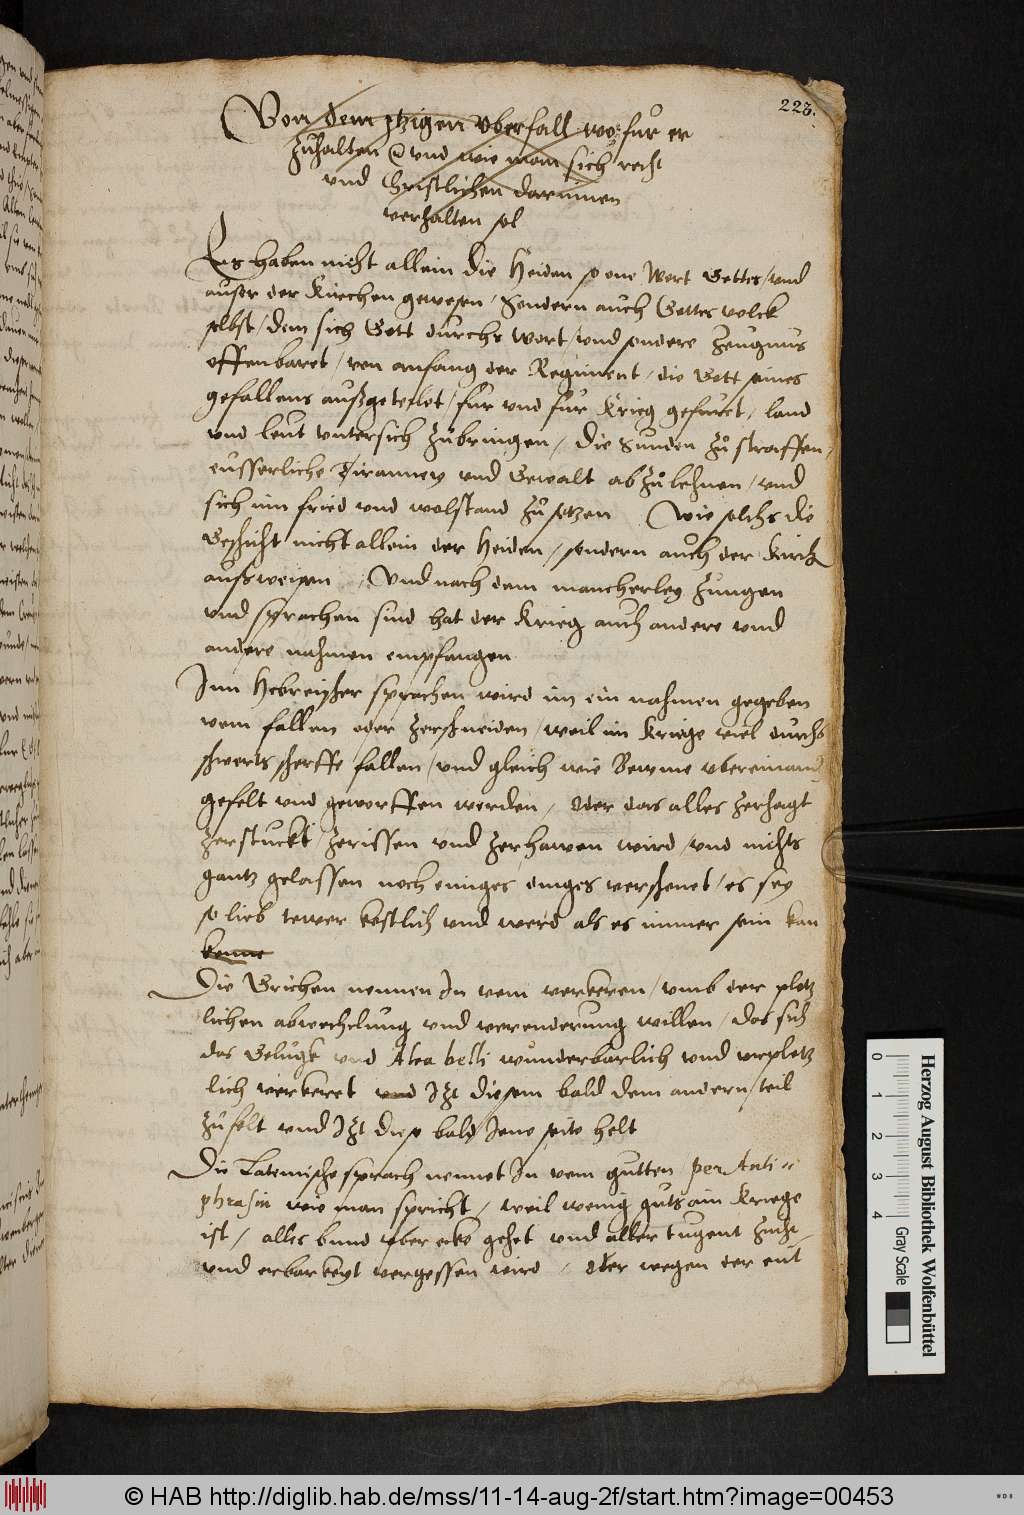 223.
Von dem ytzigen vberfall wofür er
zuhalten und wie man sich recht
vnd Christlichen darinnen
verhalten sol
Es haben nicht allein die Heiden so one Wort Gottes / vnd
ausser der Kirchen gewesen / Sondern auch Gottes volck
selbst / dem sich Gott durchs wort / vnd sondere Zeugnus
offenbaret / von anfang der Regiment / die Gott seines
gefallens außgeteilet / fur vnd fur Krieg gefuret / land
vnd leut vntersich zubringen / die Sunden zů straffen /
eusserliche Tiranney vnd Gewalt abzůlehnen / vnd
sich inn fried vnd wolstand zů setzen / Wie solchs die
Geschicht nicht allein der Heiden / sondern auch der Kirch
ausweisen / Vnd nach dem mancherley Zungen
vnd sprachen sind hat der Krieg auch andere vnd
andere nahmen empfangen
Inn Hebreischer sprachen wird im ein nahmen gegeben
vom fallen oder zerschneiden / weil im Kriege viel durchs
schwerts scherffe fallen / vnd gleich wie Bewme vbereinand
gefelt vnd geworffen werden / Oder das alles zerhagt
zerstuckt / zerissen vnd zerhawen wird / vnd nichts
gantz gelassen noch einiges dinges verschonet / es sey
so lieb tewer kostlich vnd werd als es immer sein kan
konne
Die Grichen nennen In vom verkeren / vmb der plotz
lichen abwechslung vnd verenderung willen / das sich
das Gelugk vnd Alea belli wunderbarlich vnd vnplotz
lich verkeret vnd Izt diesem bald dem andern teil
zůfelt vnd Izt diese bald Jene seite helt
Die Lateinische sprach nennet In vom gutten per Anti
phrasin wie man spricht / weil wenig guts im Kriege
ist / alles bund vber ecke gehet vnd aller tugent zucht
vnd erbarkeyt vergessen wird / Oder wegen der
Herzog August Bibliothek Wolfenbüttel
0 1 2 3 4
Gray Scale
© HAB http://diglib.hab.de/mss/11-14-aug-2f/start.htm?image=00453